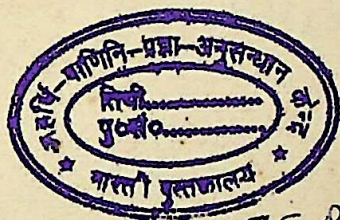 महर्षि-पाणिनि-प्रज्ञा-अनुसन्धान केन्द्र
तिथि..................
पु०सं०..................
★ भारती पुस्तकालय ★